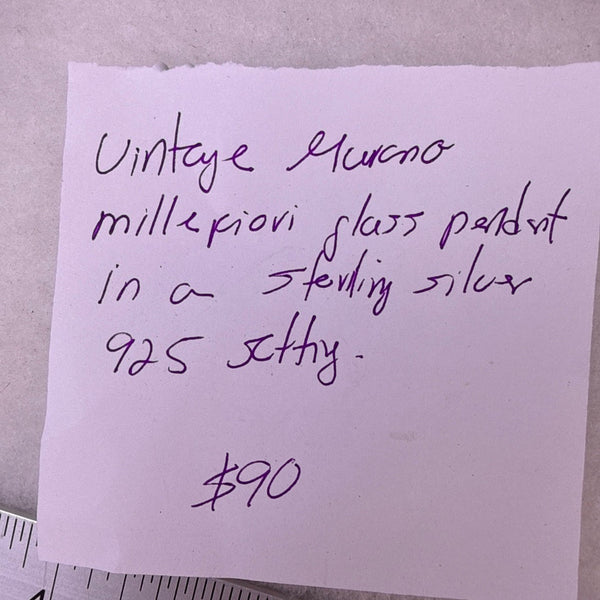 Vintage Murano
millefiori glass pendant
in a sterling silver
925 setting.
$90